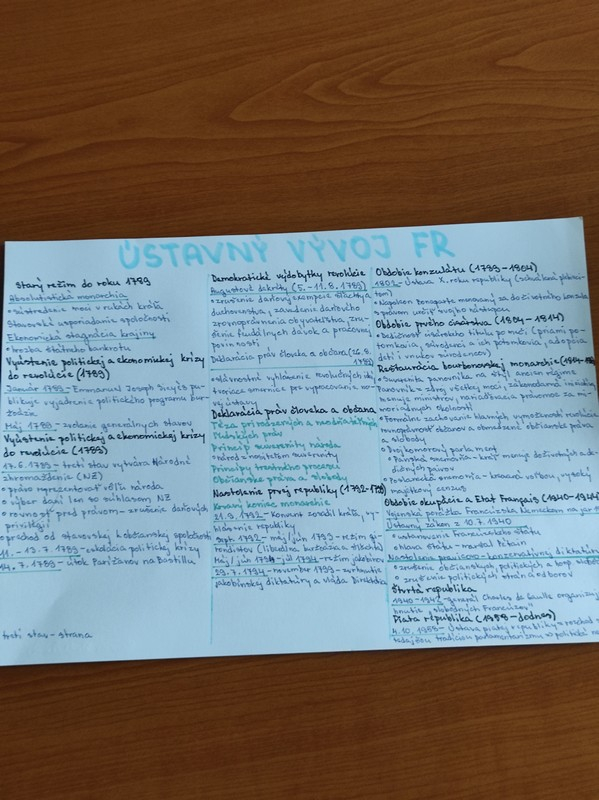 ÚSTAVNÝ VÝVOJ FR
Starý režim do roku 1789
Absolutistická monarchia
• sústredenie moci v rukách kráľa
Stavovské usporiadanie spoločnosti
Ekonomická stagnácia krajiny
• hrozba štátneho bankrotu
Vyústenie politickej a ekonomickej krízy
do revolúcie (1789)
Január 1789 - Emmanuel Joseph Sieyès pu-
blikuje vyjadrenie politického programu bur-
žoázie
Máj 1789 - zvolanie generálnych stavov
Vyústenie politickej a ekonomickej krízy
do revolúcie (1789)
17.6.1789 - tretí stav vytvára Národné
zhromaždenie (NZ)
• právo reprezentovať vôľu národa
• výber daní len so súhlasom NZ
• rovnosť pred právom - zrušenie daňových
privilégií
prechod od stavovskej k občianskej spoločnosti
11. - 13.7. 1789 - eskalácia politickej krízy
14.7. 1789 - útok Parížanov na Bastillu
tretí stav - strana
Demokratické výdobytky revolúcie
Augustové dekréty (5. - 11.8. 1789)
• zrušenie daňovej exempcie šľachty a
duchovenstva, zavedenie daňového
zrovnoprávnenia obyvateľstva, zru-
šenie feudálnych dávok a pracovnej
povinnosti
Deklarácia práv človeka a občana (26.8.
1789)
• slávnostné vyhlásenie revolučných idejí
tvoriace smernice pre vypracovanie no-
vej ústavy
Deklarácia práv človeka a občana
Téza prirodzených a neodňateľných
ľudských práv
Princíp suverenity národa
• národ = nositeľom suverenity
Princípy trestného procesu
Občianske práva a slobody
Nastolenie prvej republiky (1792-1799)
Krvavý koniec monarchie
21.9. 1792 - Konvent zosadil kráľa, vy-
hlásenie republiky
Sept. 1792 - máj/jún 1793 - režim gi-
rondistov (liberálna buržoázia a šľachta)
Máj/jún - júl 1794 - režim jakobínov
29.7. 1794 - november 1799 - zvrhnutie
jakobínskej diktatúry a vláda Direktória
Obdobie konzulátu (1799 - 1804)
1802 - Ústava X. roku republiky (schválená plebisci-
tom)
• Napoleon Bonaparte menovaný za doživotného konzula
s právom určiť svojho nástupcu
Obdobie prvého cisárstva (1804 - 1814)
• Dedičnosť cisárskeho titulu po meči (priami po-
tomkovia, súrodenci a ich potomkovia, adopcia
detí i vnukov súrodencov)
Reštaurácia bourbonskej monarchie
• Suverenita panovníka na štýl ancien régime
• Panovník - zdroj všetkej moci, zákonodarná iniciatíva,
menuje ministrov, nariaďovacia právomoc za mi-
moriadnych okolností
• Formálne zachovanie hlavných vymožeností revolúcie
rovnoprávnosť občanov a obmedzené občianske práva
a slobody
• Dvojkomorový parlament
• Panská komora - kráľ menuje doživotných a de-
dičných pánov
• Poslanecká snemovňa - kreovaná voľbou, vysoký
majetkový cenzus
Obdobie okupácie a Etat Français (1940-1944)
Vojenská porážka Francúzska Nemeckom na jar
Ústavný zákon z 10.7. 1940
• ustanovenie Francúzskeho štátu
• hlava štátu - maršal Pétain
• zrušenie občianskych, politických a
• zrušenie politických strán a odborov
Štvrtá republika
generál Charles de Gaulle
hnutie "slobodných Francúzov"
Piata republika (1958 - dodnes)
4.10. 1958 - Ústava piatej republiky
tradíciou parlamentarizmu